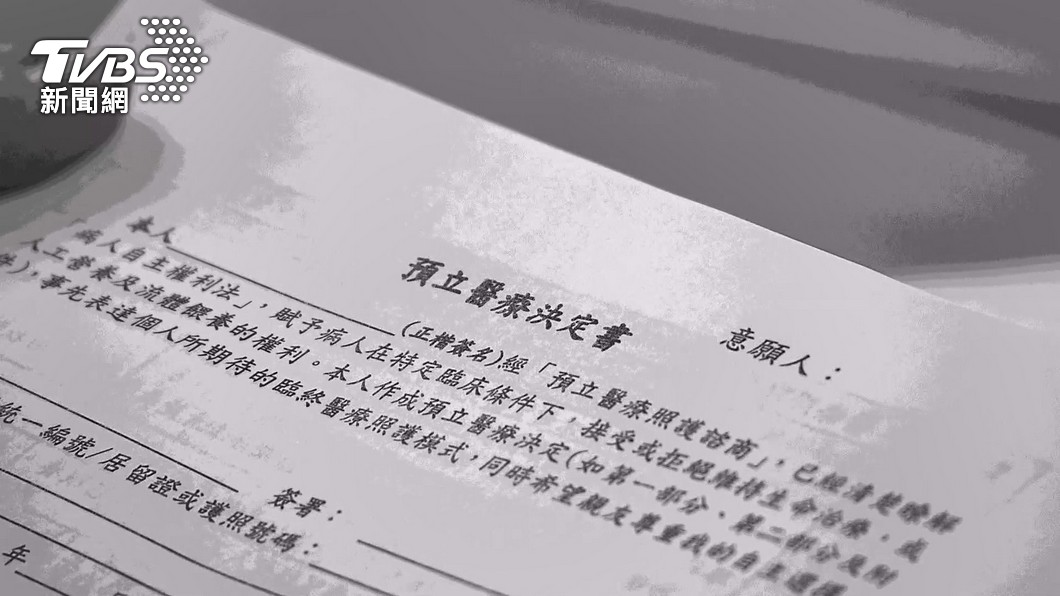 TVBS
新聞網
預立醫療決定書
意願人：
本人(正楷簽名)經「預立醫療照護諮商」，已經清楚瞭解
病人自主權利法」，賦予病人在特定臨床條件下，接受或拒絕維持生命治療，或
人工營養及流體餵養的權利。本人作成預立醫療決定(如第一部分、第二部分及附
件)，事先表達個人所期待的臨終醫療照護模式，同時希望親友尊重我的自主選擇
簽署：
統一編號/居留證或護照號碼：
年